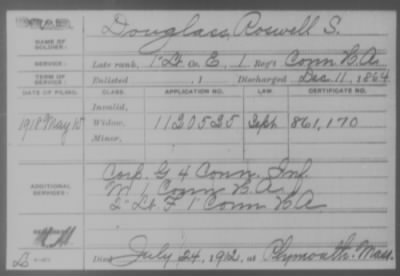 Douglass, Roswell S.
NAME OF SOLDIER:
SERVICE: Late rank, 1" Lt Co. E, 1 Reg't Conn H.A
TERM OF SERVICE: Enlisted , 1 Discharged Dec. 11, 1864
DATE OF FILING. CLASS. APPLICATION NO. LAW. CERTIFICATE NO.
Invalid,
1918 May 15 Widow, 1120525 Sept. 861,170
Minor,
ADDITIONAL SERVICES: Corp. G 4 Conn. Inf.
M 1 Conn H.A.
2" Lt F 1" Conn H.A
Died July 24, 1912, at Plymouth, Mass.